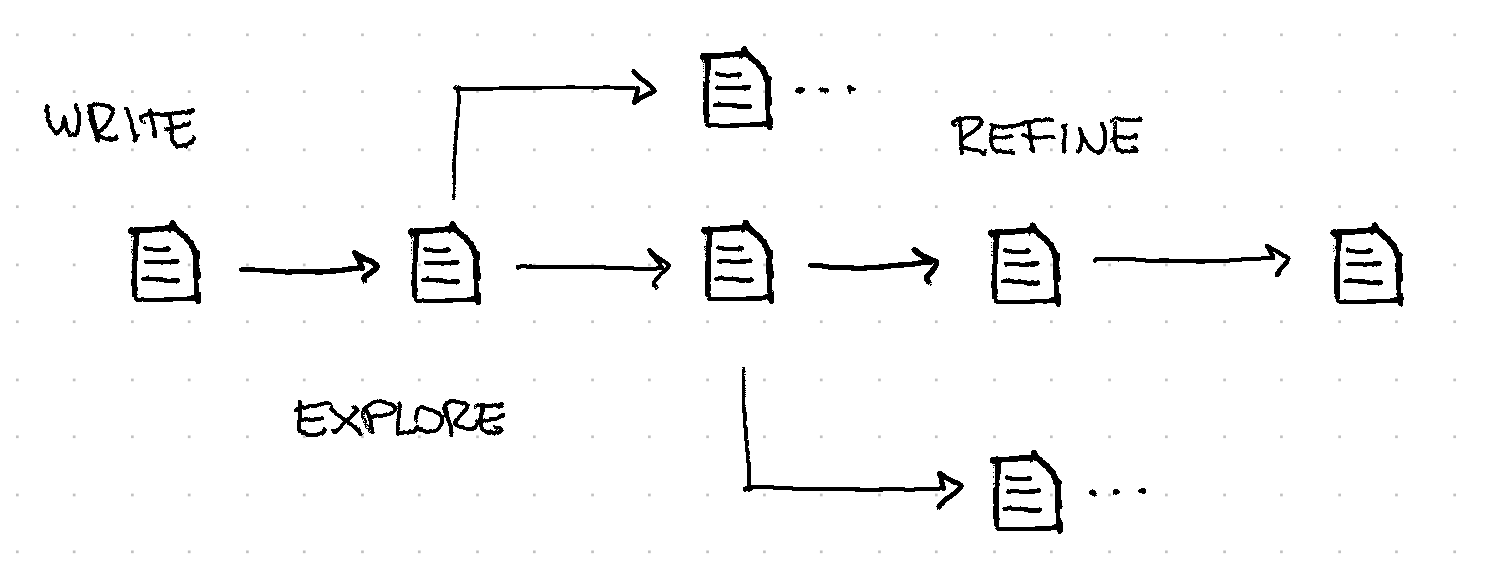 WRITE
REFINE
EXPLORE